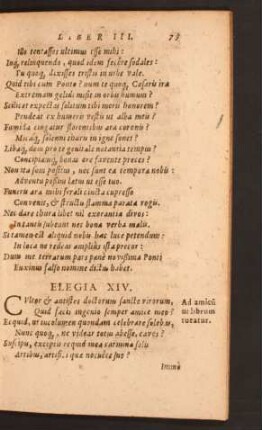 LIBER III. 78
Illo tentasses ultimus isse mihi:
Inq; relinquendo, quod idem fecere sodales:
Tu quoq; dixisses tristis in urbe vale.
Quid tibi cum Ponto? num te quoq; Cæsaris ira
Extremam gelidi misit in orbis humum?
Scilicet expectas solitum tibi moris honorem?
Pendeat ex humeris vestis ut alba meis?
Fumida cingatur florentibus ara coronis?
Micaq; solenni thuris in igne sonet?
Libaq; dem pro te genitale notantia tempus?
Concipiamq; bonas ore favente preces?
Non ita sum positus, nec sunt ea tempora nobis:
Adventu possim lætus ut esse tuo.
Funeris ara mihi ferali cincta cupresso
Convenit, & structis flamma parata rogis.
Nec dare thura libet nil exorantia divos:
In tantis subeunt nec bona verba malis.
Si tamen est aliquid nobis hac luce petendum:
In loca ne redeas amplius ista precor:
Dum me terrarum pars pæne novissima Ponti
Euxinus falso nomine dictus habet.
ELEGIA XIV.
CUltor & antistes doctorum sancte virorum,
Quid facis ingenio semper amice meo?
Ecquid, ut incolumem quondam celebrare solebas,
Nunc quoq, ne videar totus abesse, caves?
Suscipis, exceptis ecquid mea carmina solis
Artibus, artifici quæ nocuere suo?
Ad amicū
ut librum
tueatur.
Immo